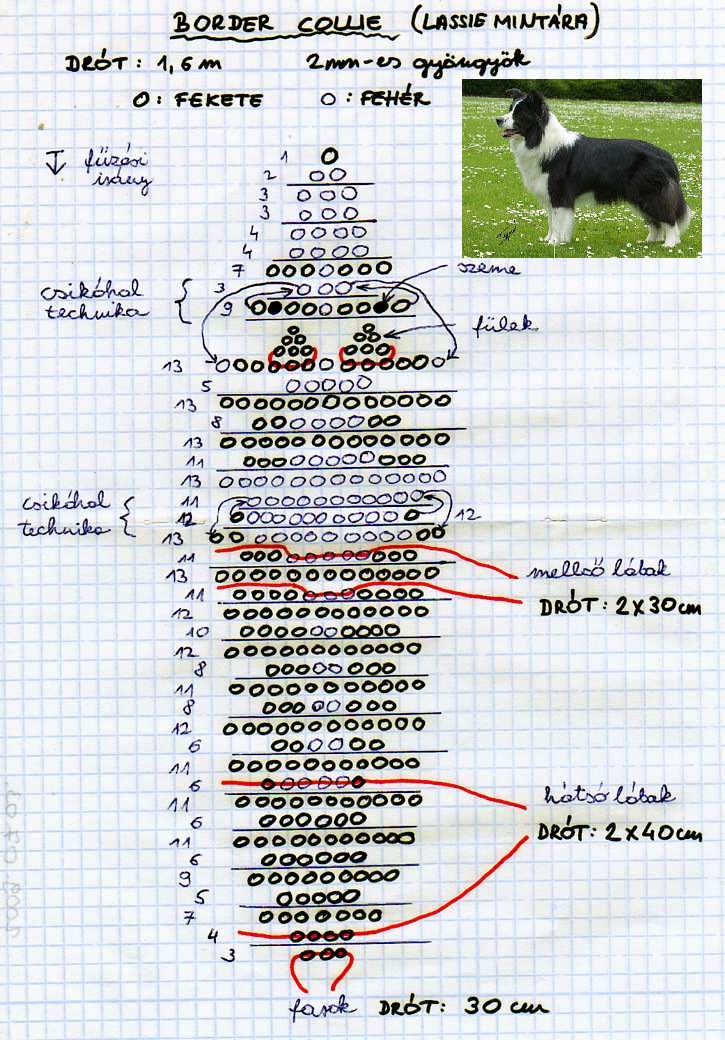 BORDER COLLIE (LASSIE MINTÁRA)
DRÓT: 1,6 m 2mm-es gyöngyök
O: FEKETE O: FEHÉR
fűzési
irány
1
2
3
3
4
4
7
szeme
3
csikóhal
technika
9
fülek
13
5
13
8
13
11
13
11
csikóhal
technika
12 12
13
11
mellső lábak
13
11
DRÓT: 2X30cm
12
10
12
8
11
8
12
6
11
6
hátsó lábak
11
6
DRÓT: 2X40cm
11
6
9
5
7
4
3
farok DRÓT: 30 cm